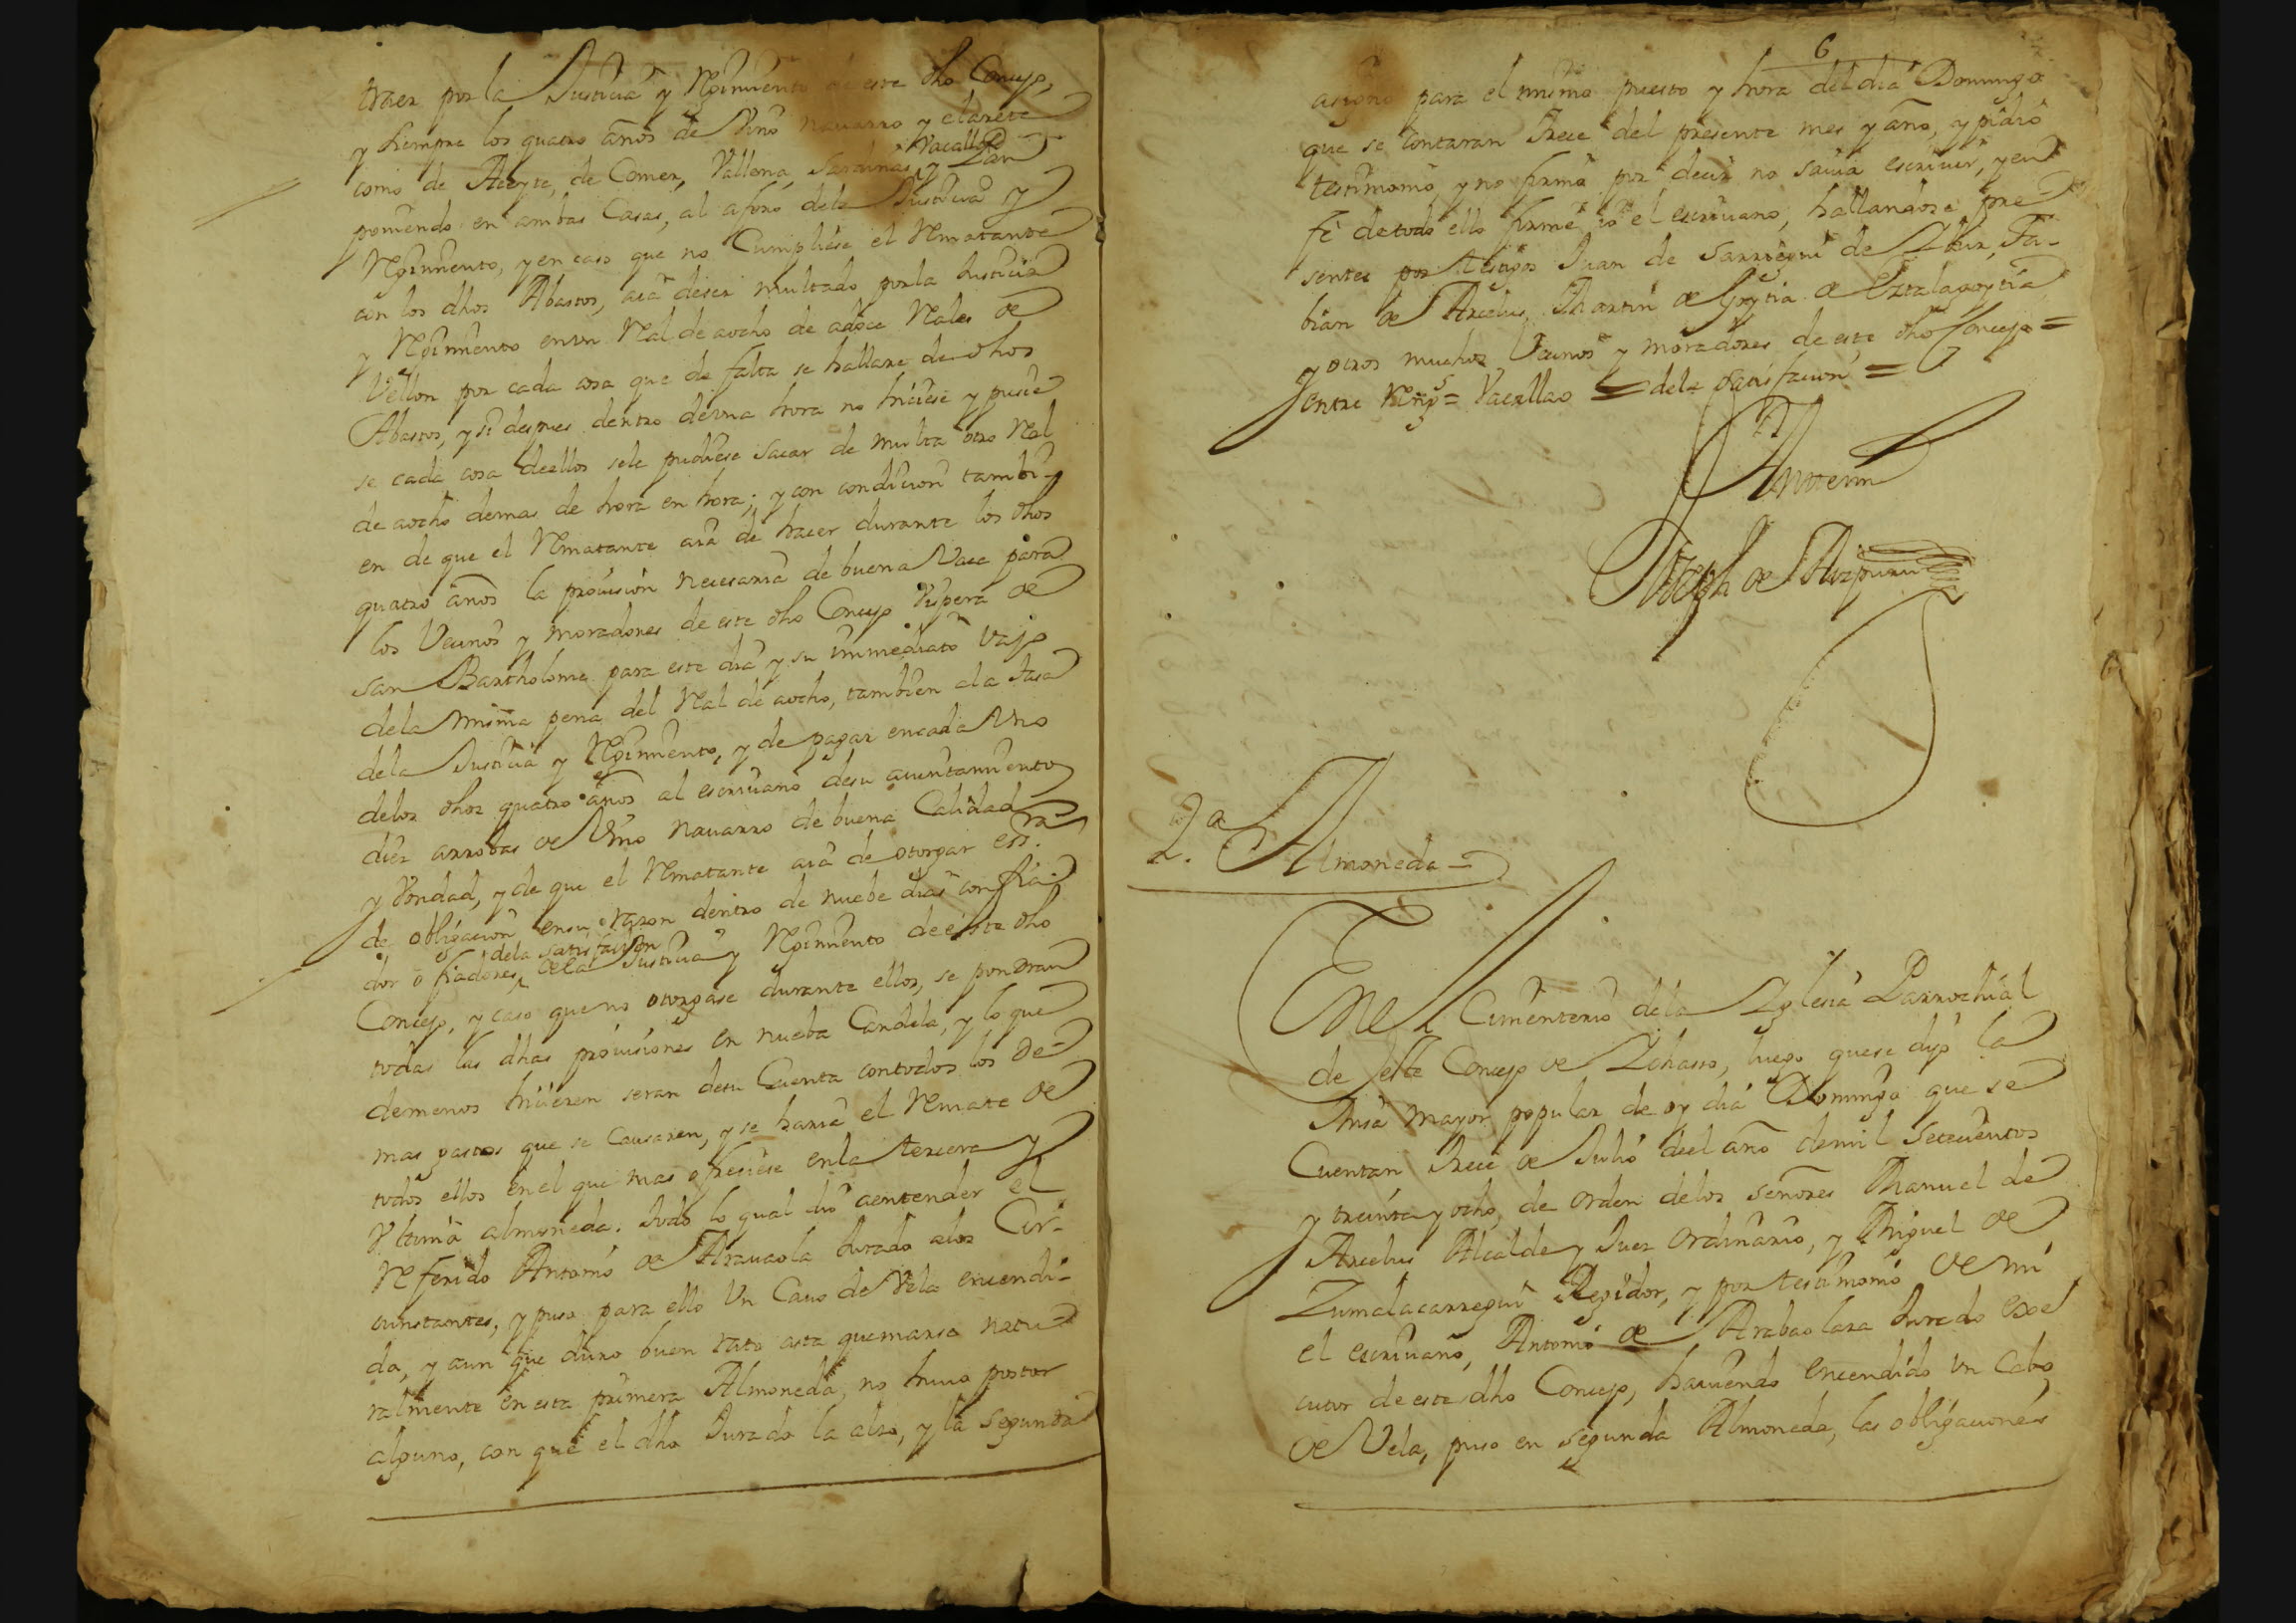 traer por la Justicia y Rejimiento de este dho Concejo,
y siempre los quatro años de Vino navarro y clarete
como de Aceyte, de Comer, Vallena, Sardinas, y Pan
Vacallao
poniendo en ambas Casas, al aforo dela Justicia y
Rejimiento, y en caso que no Cumpliese el Rematante
con los dhos Abastos, aia de ser multado por la Justicia
y Rejimiento en Un Real de aocho de adoce Reales de
Vellon por cada cosa que de falta se hallare de dhos
Abastos, y si despues dentro de una hora no hiciese y pusie
se cada cosa de ellos se le pudiese sacar de multa otro Real
de aocho demas de hora en hora; y con condicion tambi-
en de que el Rematante aia de hacer durante los dhos
quatro años la provision necesaria de buena Vaca para
los Vecinos y moradores de este dho Concejo Vispera de
San Bartholome para este dia y su immediato vajo
dela misma pena del Real de aocho, tambien a la tasa
dela Justicia y Rejimiento, y de pagar en cada Uno
delos dhos quatro años al escrivano de su aiuntamiento
diez arrobas de Vino navarro de buena Calidad
y Vondad, y de que el Rematante aia de otorgar essra
de obligacion en su razon dentro de nuebe dias con fia-
dela satisfacion
dor o fiadores, dela Justicia y Rejimiento de este dho
Concejo, y caso que no otorgase durante ellos, se pondran
todas las dhas provisiones en nueba Candela, y lo que
de menos hicieren seran de su Cuenta con todos los de-
mas gastos que se Causaren, y se haria el Remate de
todos ellos en el que mas ofreciese en la tercera y
Ultima almoneda. todo lo qual dio aentender el
Referido Antonio de Aravaola Jurado alos Cir-
cunstantes, y puso para ello Un Cavo de Vela encendi-
da, y aun que duro buen rato asta quemarse natu-
ralmente en esta primera Almoneda, no huvo postor
alguno, con que el dho Jurado la alzo, y la segunda
6
asigno para el mismo puesto y hora del dia Domingo
que se contaran trece del presente mes y año, y pidio
testimonio y no firmo por decir no savia escrivir, y en
fe de todo ello firme io el escrivano, hallandose pre
sentes por testigos Juan de Sarriegui de, Fa-
bian de Arcelus, Martin de Goytia de Oztalagoytia
y otros muchos Vecinos y moradores de este dho Concejo =
entre Reng.s = Vacallao = dela satisfacion =
Ante mi
Joseph de Aizpuru
2.a Almoneda =
En el Cimenterio dela Yglesia Parrochial
de este Concejo de Ichaso, luego que se dijo la
Misa mayor popular de oy dia Domingo que se
Cuentan trece de Julio del año de mil setecientos
y treinta y ocho, de orden delos señores Manuel de
Arcelus Alcalde y Juez ordinario, y Miguel de
Zumalacarregui Regidor, y por testimonio de mi
el escrivano, Antonio de Arabaolaza Jurado exe
cutor de este dho Concejo, haviendo encendido un Cabo
de Vela, puso en segunda Almoneda, las obligaciones